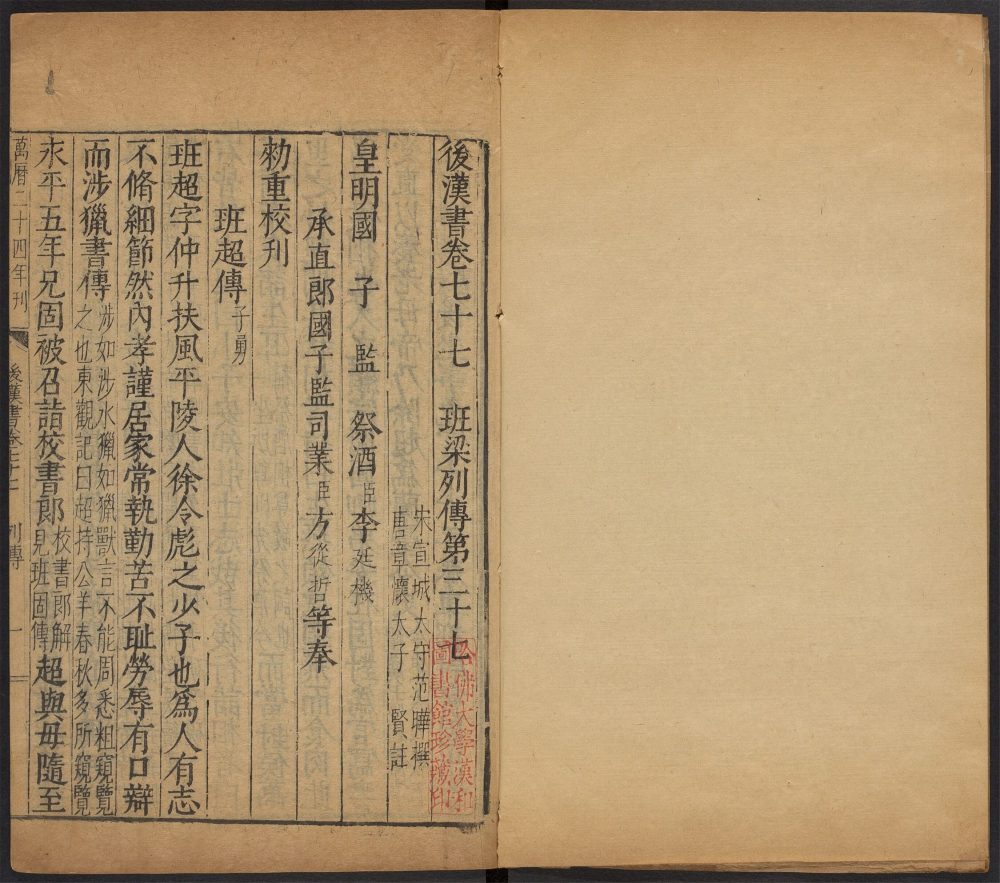 後漢書卷七十七　班梁列傳第三十七
宋宣城太守范曄撰
唐章懷太子賢註
皇明國子監祭酒臣李廷機
承直郎國子監司業臣方從哲等奉
勑重校刋
班超傳子勇
班超字仲升扶風平陵人徐令彪之少子也爲人有志
不脩細節然內孝謹居家常執勤苦不恥勞辱有口辯
而涉獵書傳涉如涉水獵如獵獸言不能周悉粗窺覽之也東觀記曰超持公羊春秋多所窺覽
永平五年兄固被召詣校書郎校書郎解見班固傳超與母隨至
萬曆二十四年刊　後漢書卷七十七　列傳　一
哈佛大學漢和
圖書館珍藏印